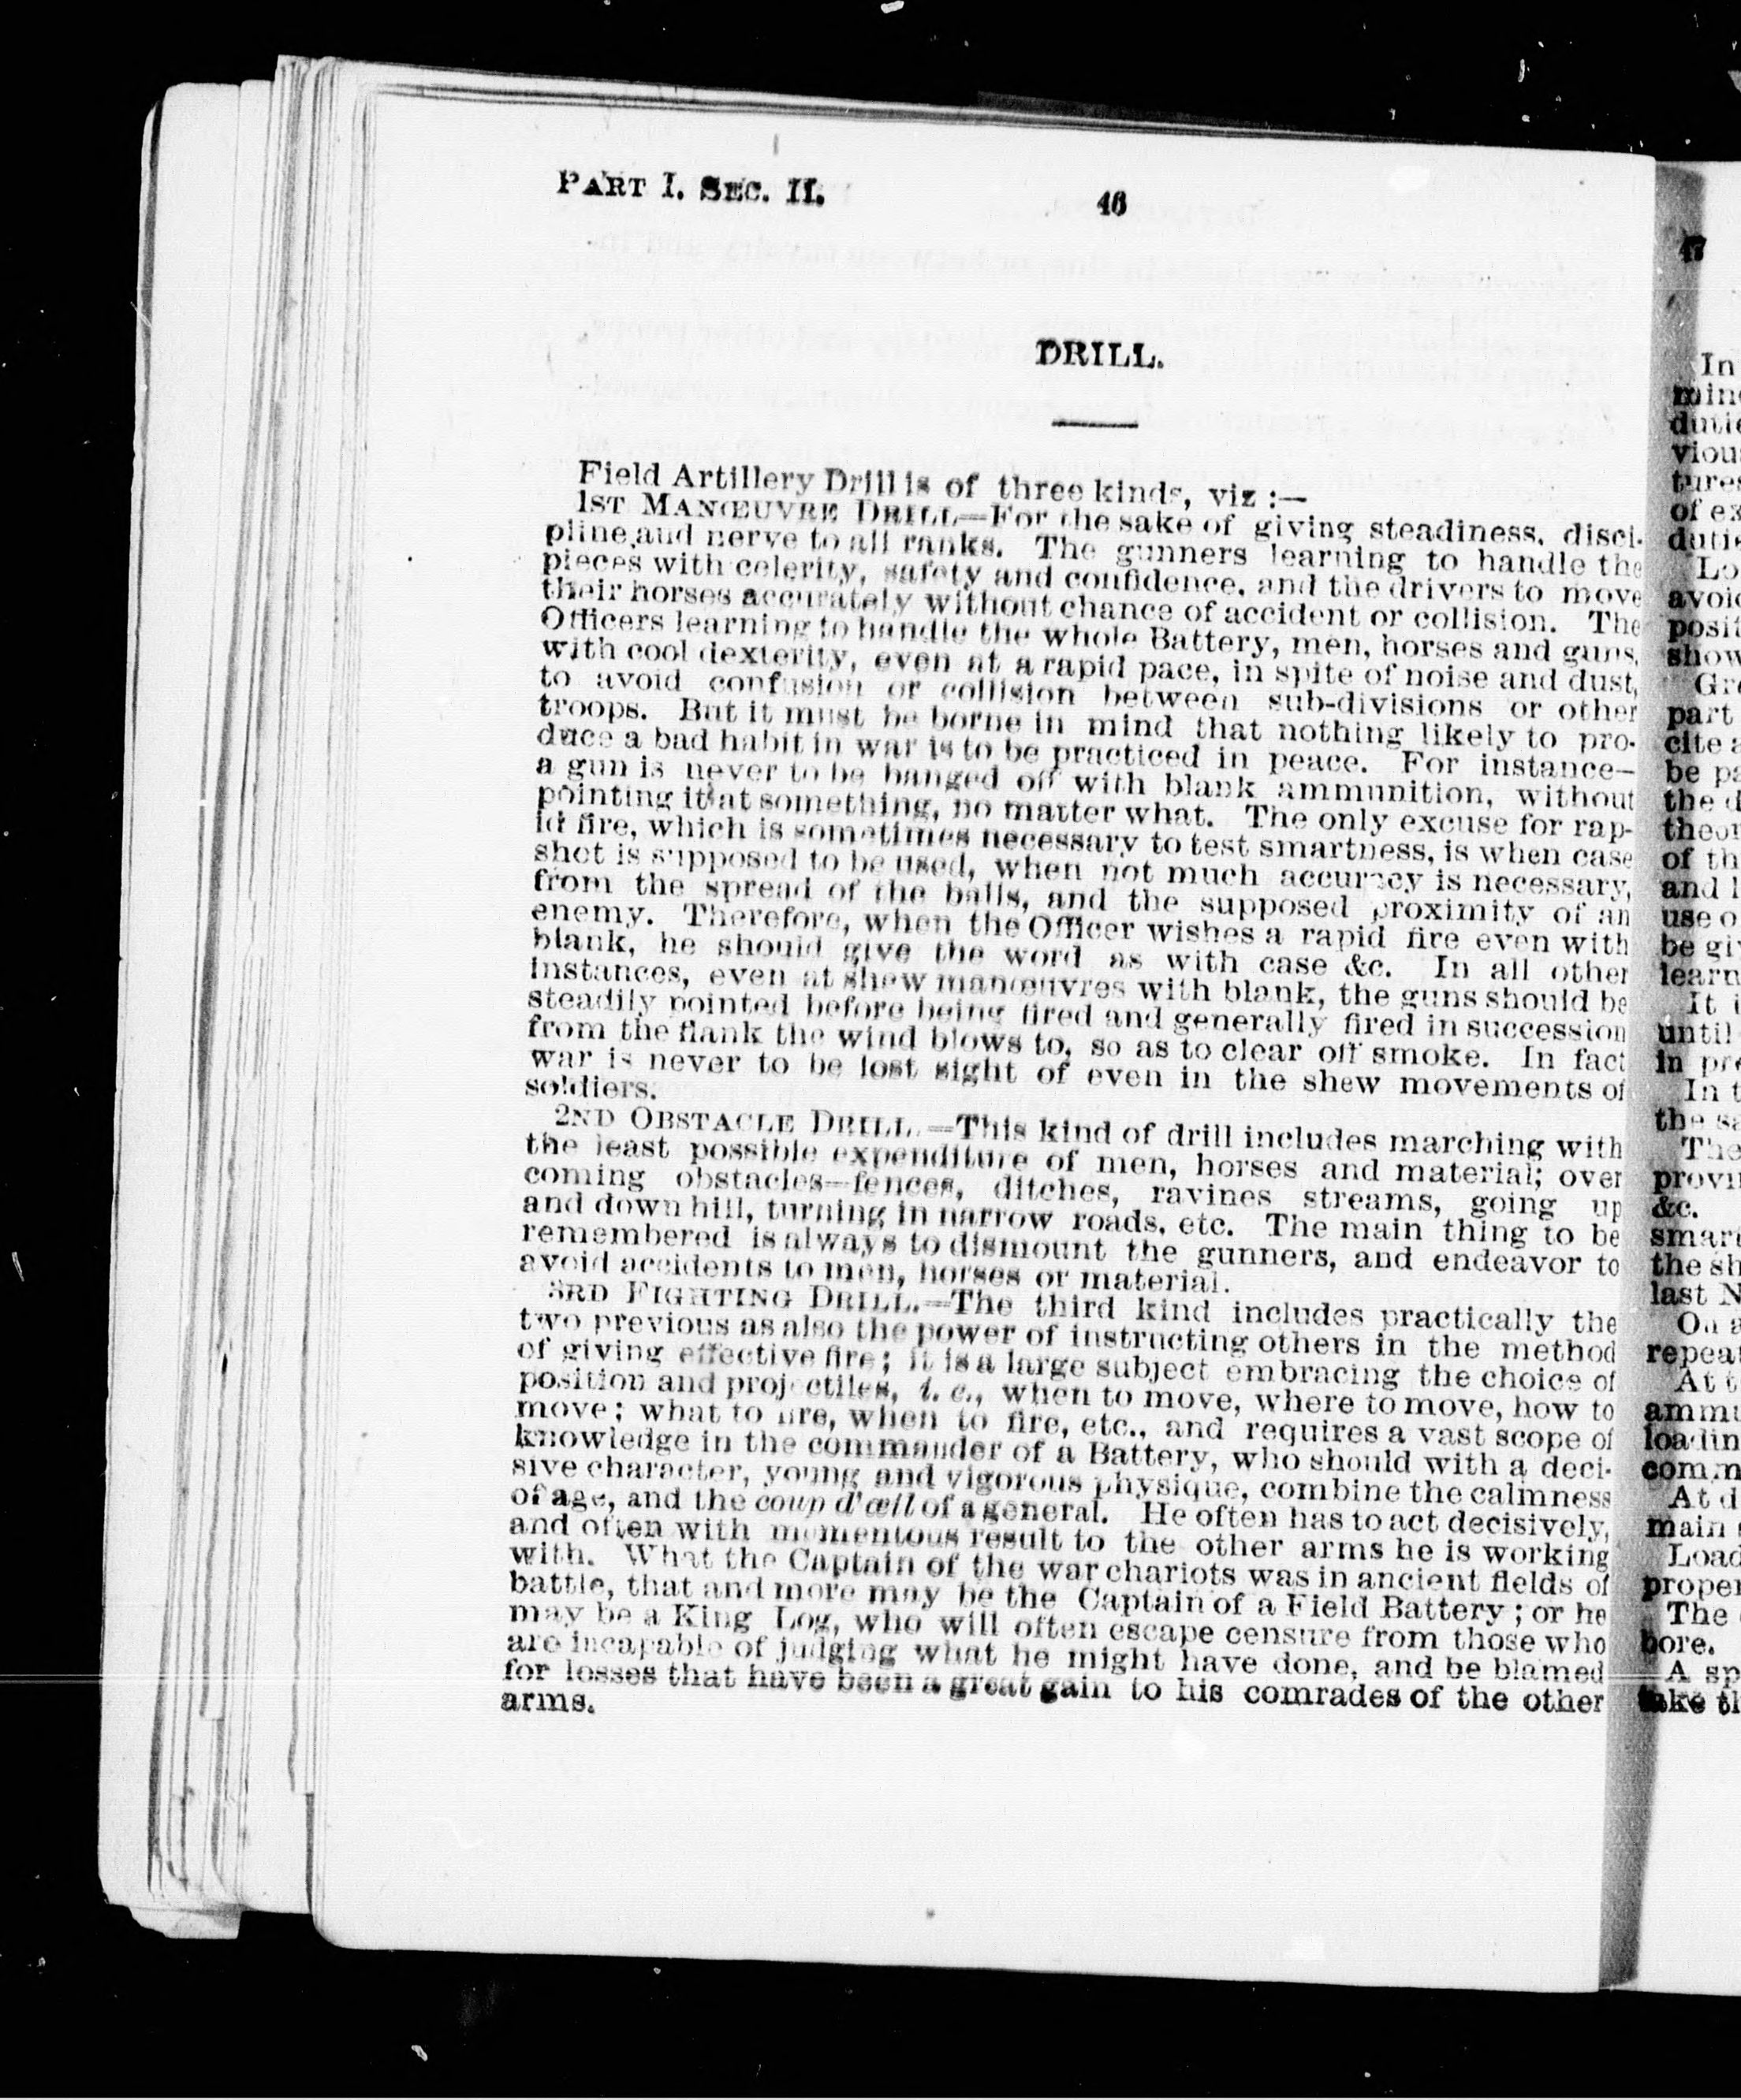 PART I. SEC. II.
46
DRILL.
Field Artillery Drill is of three kinds, viz :—
1ST MANŒUVRE DRILL—For the sake of giving steadiness, disci-
pline and nerve to all ranks. The gunners learning to handle the
pieces with celerity, safety and confidence, and the drivers to move
their horses accurately without chance of accident or collision. The
Officers learning to handle the whole Battery, men, horses and guns,
with cool dexterity, even at a rapid pace, in spite of noise and dust,
to avoid confusion or collision between sub-divisions or other
troops. But it must be borne in mind that nothing likely to pro-
duce a bad habit in war is to be practiced in peace. For instance—
a gun is never to be banged off with blank ammunition, without
pointing it at something, no matter what. The only excuse for rap-
id fire, which is sometimes necessary to test smartness, is when case
shot is supposed to be used, when not much accuracy is necessary,
from the spread of the balls, and the supposed proximity of an
enemy. Therefore, when the Officer wishes a rapid fire even with
blank, he should give the word as with case &c. In all other
instances, even at shew manœuvres with blank, the guns should be
steadily pointed before being fired and generally fired in succession
from the flank the wind blows to, so as to clear off smoke. In fact
war is never to be lost sight of even in the shew movements of
soldiers.
2ND OBSTACLE DRILL.—This kind of drill includes marching with
the least possible expenditure of men, horses and material; over
coming obstacles—fences, ditches, ravines streams, going up
and down hill, turning in narrow roads, etc. The main thing to be
remembered is always to dismount the gunners, and endeavor to
avoid accidents to men, horses or material.
3RD FIGHTING DRILL.—The third kind includes practically the
two previous as also the power of instructing others in the method
of giving effective fire; it is a large subject embracing the choice of
position and projectiles, i. e., when to move, where to move, how to
move; what to fire, when to fire, etc., and requires a vast scope of
knowledge in the commander of a Battery, who should with a deci-
sive character, young and vigorous physique, combine the calmness
of age, and the coup d'œil of a general. He often has to act decisively,
and often with momentous result to the other arms he is working
with. What the Captain of the war chariots was in ancient fields of
battle, that and more may be the Captain of a Field Battery ; or he
may be a King Log, who will often escape censure from those who
are incapable of judging what he might have done, and be blamed
for losses that have been a great gain to his comrades of the other
arms.